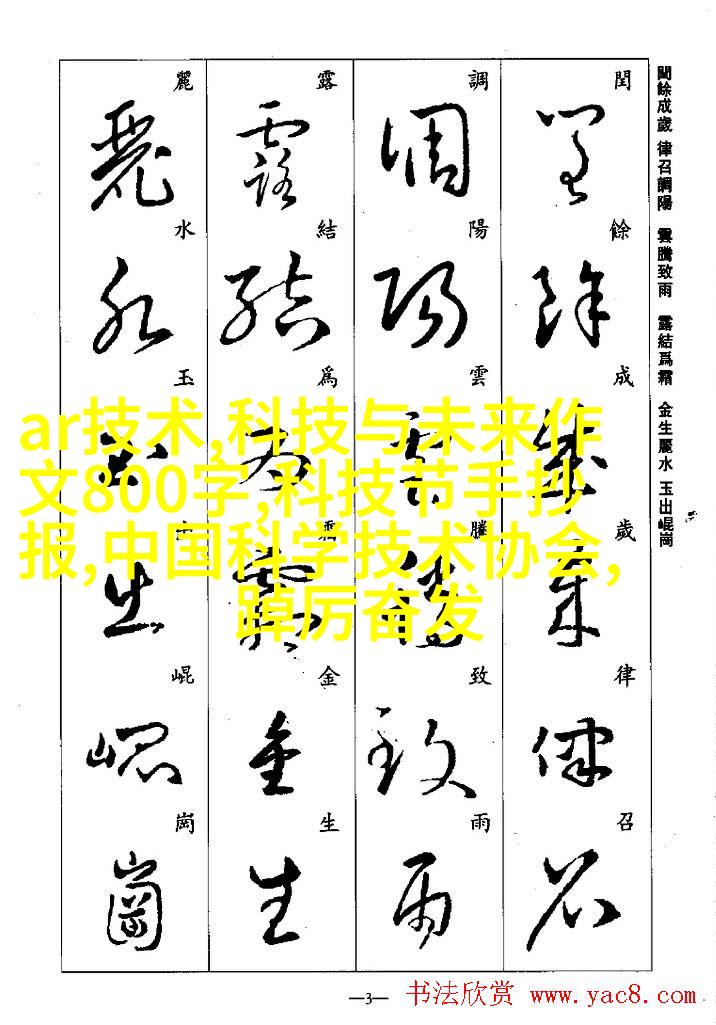 閏餘成歲 律召調陽 雲騰致雨 露結爲霜 金生麗水 玉出崐崗
閏餘成歲律召
閏餘成歲律召
調陽雲騰致雨
調陽雲騰致雨
露結爲霜金生
露結爲霜金生
麗水玉出崐崗
麗水玉出崐崗
ar技术,科技与未来作
文800字,科技节手抄
报,中国科学技术协会,
踔厉奋发
—3—
书法欣赏 www.yac8.com